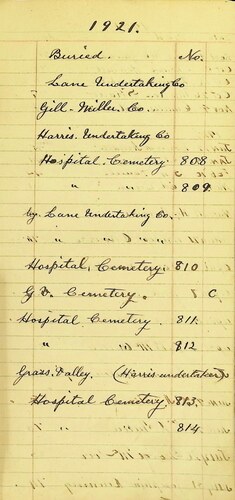 1921.
Buried. No.
Lane Undertaking Co
Gill-Miller. Co.
Harris. Undertaking Co
Hospital Cemetery. 808
" " 809
by. Lane Undertaking Co.
" " "
Hospital, Cemetery. 810
G. V. Cemetery. C.
Hospital Cemetery. 811.
" 812
Grass. Valley. (Harris undertakers)
Hospital Cemetery 813.
" " 814.